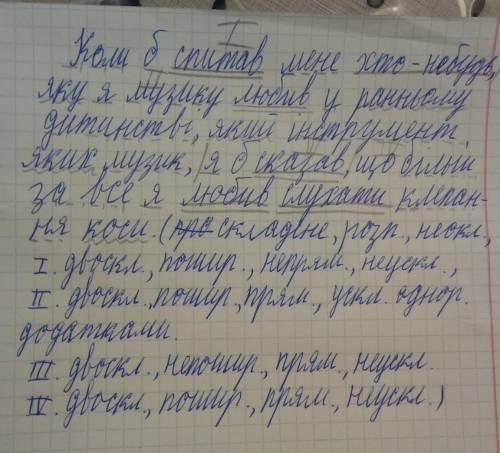 I
Коли б спитав мене хто-небудь,
яку я музику любив у ранньому
дитинстві, який інструмент,
яких музик, я б сказав, що білый
за все я любив слухати клепан-
ня коси. (складене, розп., неокл.,
I. двоскл., пошир., непрям., неускл.,
II. двоскл., пошир., прям., ускл. однор.
додатками.
III. двоскл., непошир., прям., неускл.
IV. двоскл., пошир., прям., неускл.)